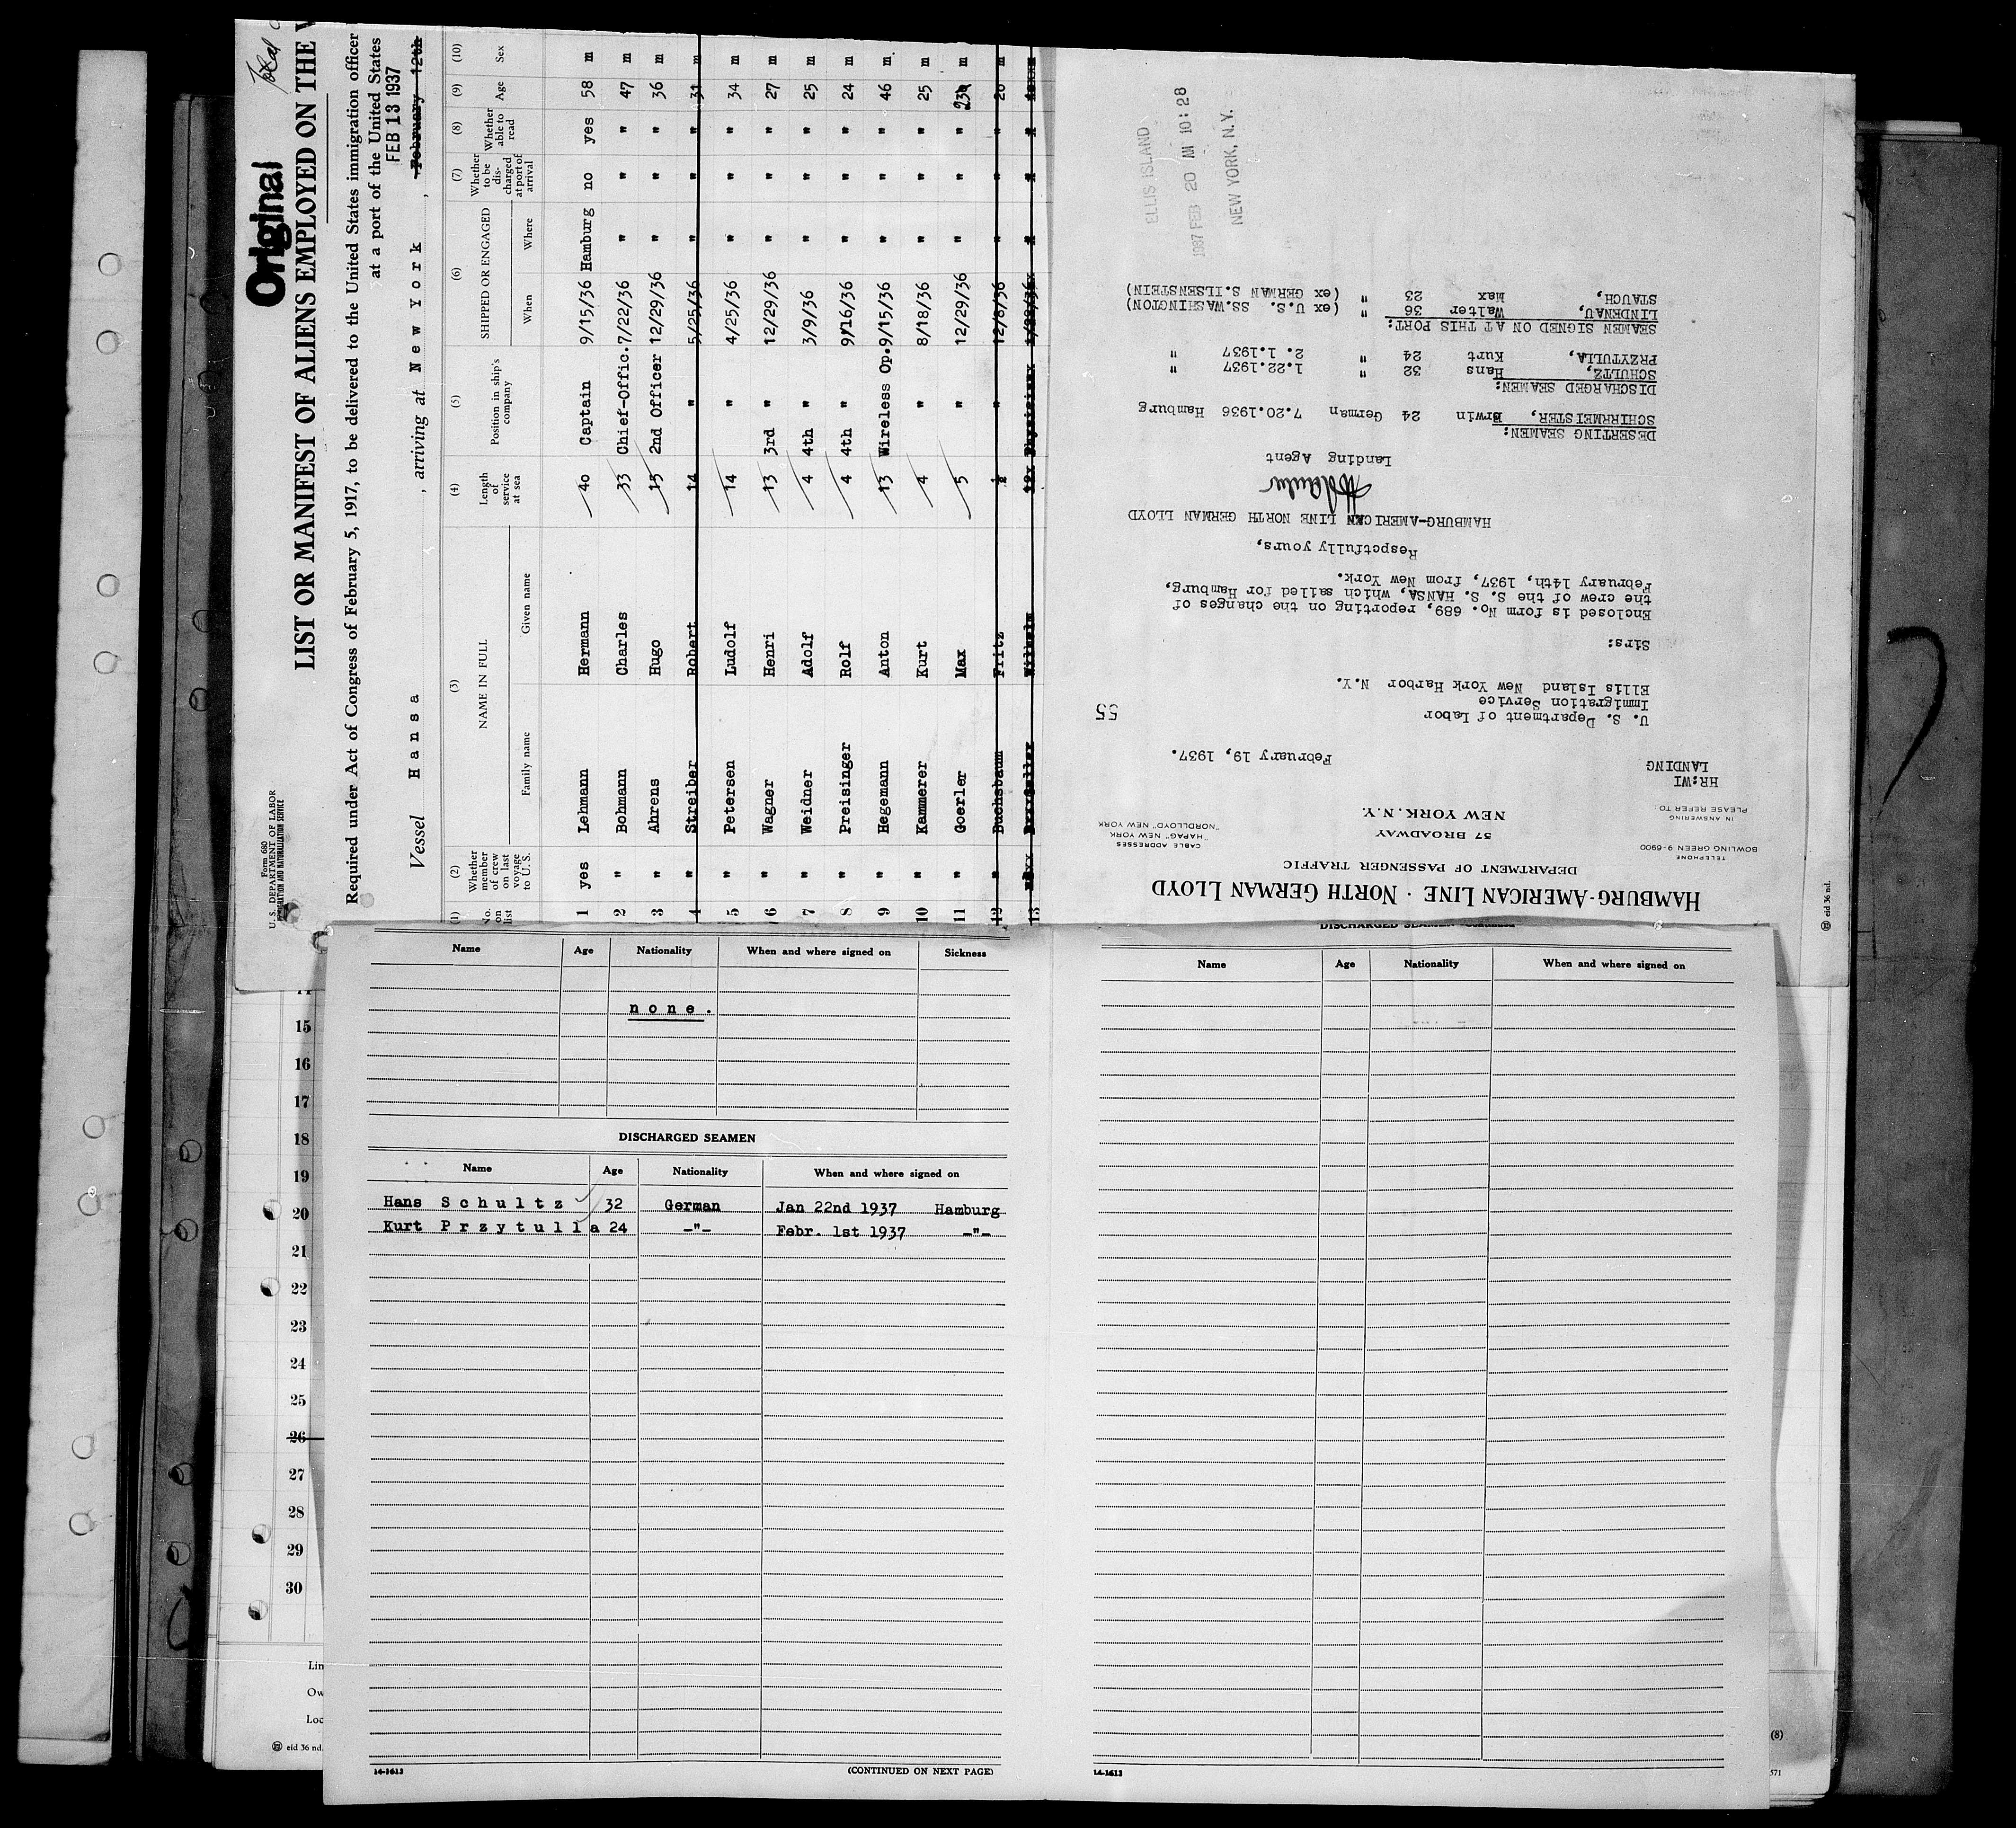 Total
Original
LIST OR MANIFEST OF ALIENS EMPLOYED ON THE
Form 680
U. S. DEPARTMENT OF LABOR
IMMIGRATION AND NATURALIZATION SERVICE
Required under Act of Congress of February 5, 1917, to be delivered to the United States immigration officer
at a port of the United States
FEB 13 1937
Vessel Hansa , arriving at New York , February 12th
(1) (2) (3) (4) (5) (6) (7) (8) (9) (10)
No. on list Whether member of crew on last voyage to U. S. NAME IN FULL Family name Given name Length of service at sea Position in ship's company SHIPPED OR ENGAGED When Where Whether to be discharged at port of arrival Whether able to read Age Sex
1 yes Lehmann Hermann 40 Captain 9/15/36 Hamburg no yes 58 m
2 " Bohmann Charles 33 Chief-Offic. 7/22/36 " " " 47 m
3 " Ahrens Hugo 15 2nd Officer 12/29/36 " " " 36 m
4 " Streiber Robert 14 " 5/25/36 " " " 31 m
5 " Petersen Ludolf 14 " 4/25/36 " " " 34 m
6 " Wagner Henri 13 3rd " 12/29/36 " " " 27 m
7 " Weidner Adolf 4 4th " 3/9/36 " " " 25 m
8 " Preisinger Rolf 4 4th " 9/16/36 " " " 24 m
9 " Hegemann Anton 13 Wireless Op. 9/15/36 " " " 46 m
10 " Kammerer Kurt 4 " 8/18/36 " " " 25 m
11 " Goerler Max 5 " 12/29/36 " " " 23 m
12 " Buchsbaum Fritz " 12/8/36 " " " 20 m
13 Wilhelm Physician
HAMBURG-AMERICAN LINE · NORTH GERMAN LLOYD
DEPARTMENT OF PASSENGER TRAFFIC
57 BROADWAY
NEW YORK, N.Y.
TELEPHONE
BOWLING GREEN 9-6900
IN ANSWERING
PLEASE REFER TO:
CABLE ADDRESSES
"HAPAG" NEW YORK
"NORDLLOYD" NEW YORK
HR:WI
LANDING
February 19, 1937.
55
U. S. Department of Labor
Immigration Service
Ellis Island New York Harbor N.Y.
Sirs:
Enclosed is form No. 689, reporting on the changes of
the crew of the S. S. HANSA, which sailed for Hamburg,
February 14th, 1937, from New York.
Respctfully yours,
HAMBURG-AMERICAN LINE NORTH GERMAN LLOYD
Landing Agent
DESERTING SEAMEN:
SCHIRRMEISTER, Erwin 24 German 7.20.1936 Hamburg
DISCHARGED SEAMEN:
SCHULTZ, Hans 32 " 1.22.1937 "
PRZYTULLA, Kurt 24 " 2. 1.1937 "
SEAMEN SIGNED ON AT THIS PORT:
LINDENAU, Walter 36 " (ex U.S. SS.WASHINGTON)
STAUCH, Max 23 " (ex GERMAN S.ILSENSTEIN)
ELLIS ISLAND
1937 FEB 20 AM 10:28
NEW YORK, N.Y.
eid 36 nd.
Name Age Nationality When and where signed on Sickness
none.
DISCHARGED SEAMEN
Name Age Nationality When and where signed on
Hans Schultz 32 German Jan 22nd 1937 Hamburg
Kurt Przytulla 24 -"- Febr. 1st 1937 -"-
14-1613
(CONTINUED ON NEXT PAGE)
DISCHARGED SEAMEN—Continued
Name Age Nationality When and where signed on
14-1613
15
16
17
18
19
20
21
22
23
24
25
26
27
28
29
30
Lin
Ow
Loc
eid 36 nd.
(8)
571